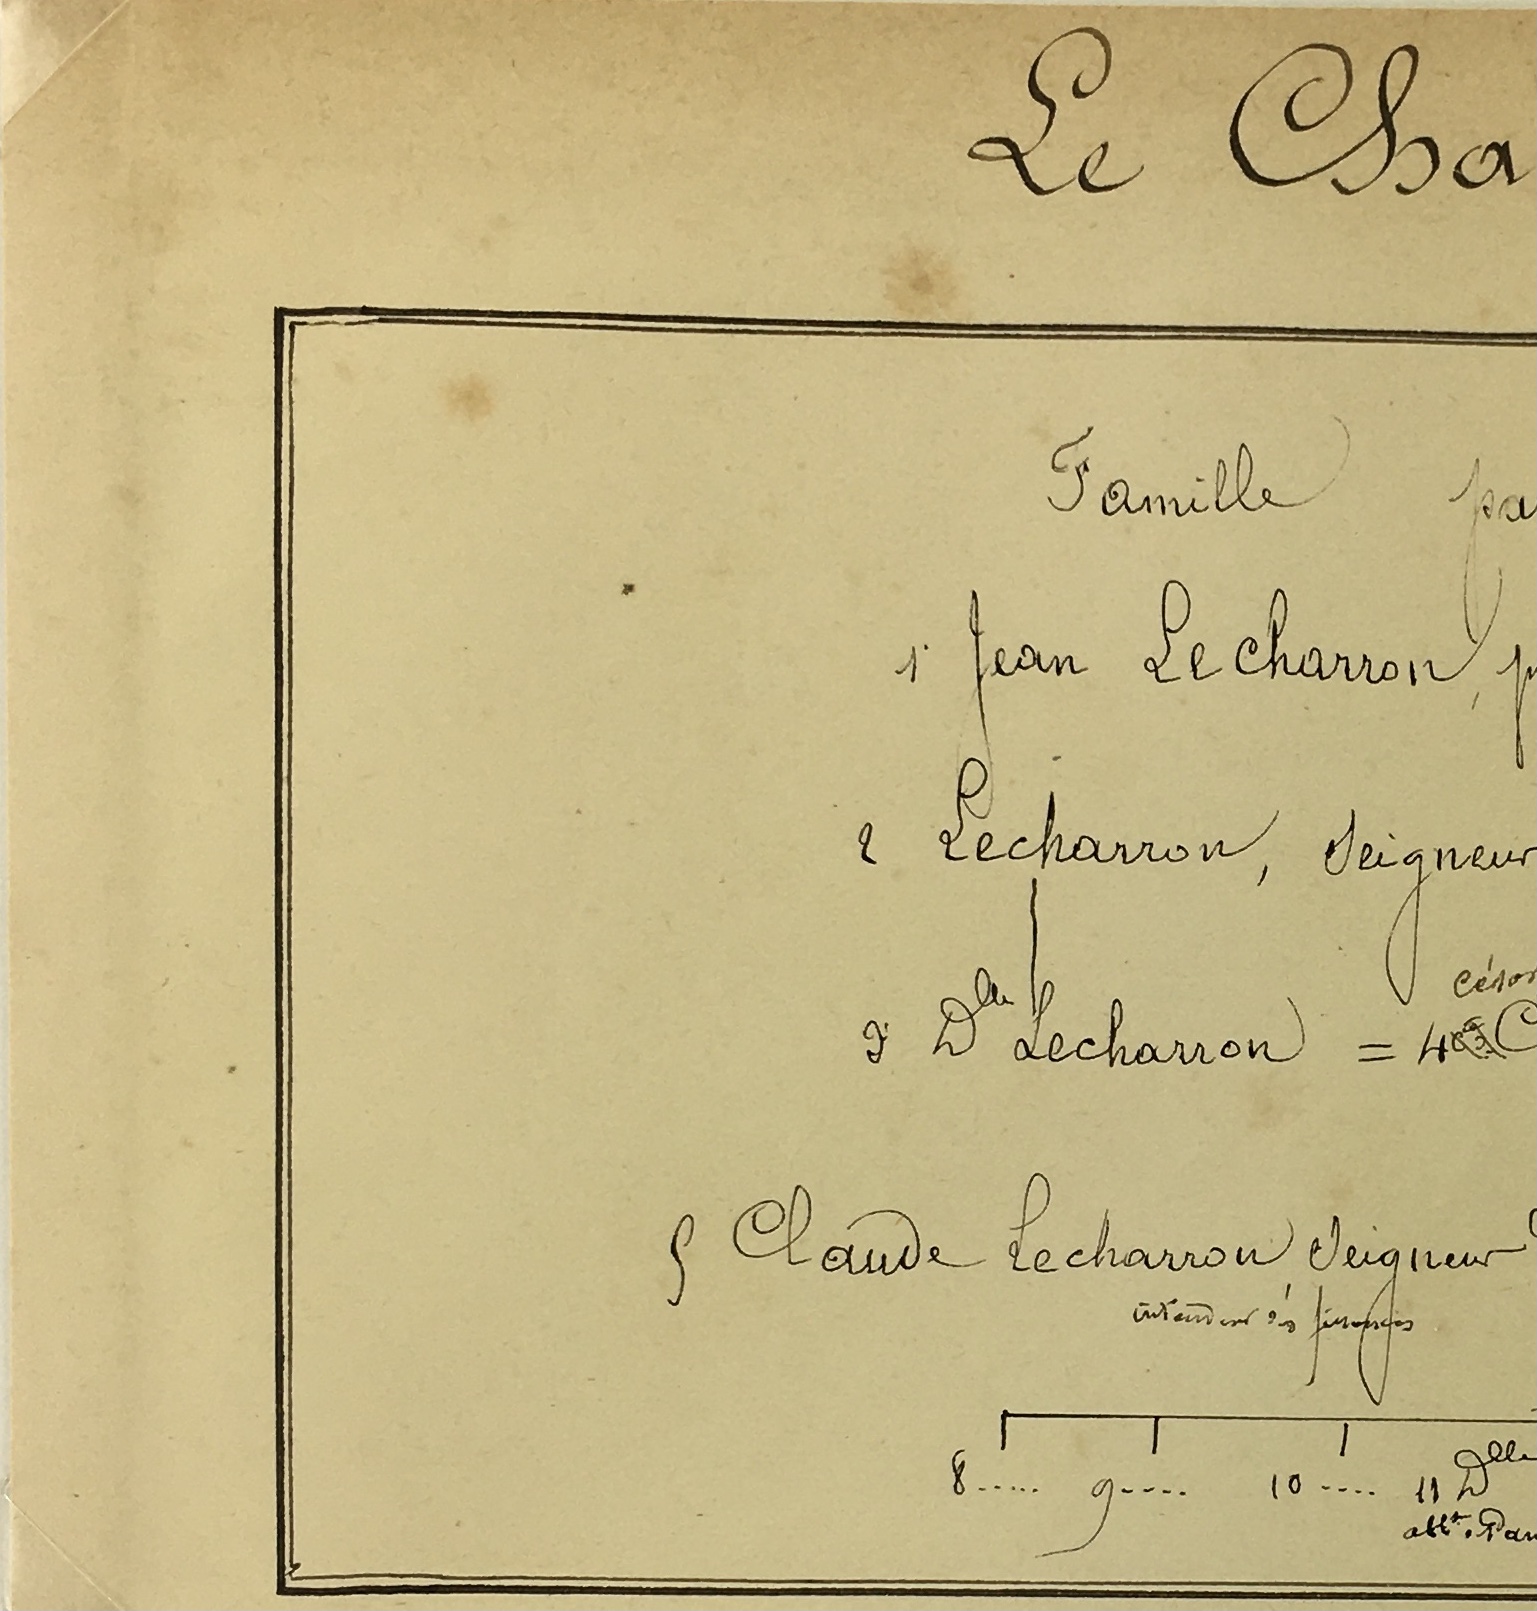 Le Cha
Famille pa
1 Jean Lecharron, p
2 Lecharron, Seigneur
Céso
3 Dlle Lecharron = 4 C
5 Claude Lecharron Seigneur
intendant des finances
8..... 9.... 10.... 11 Dlle
abbt. Pa